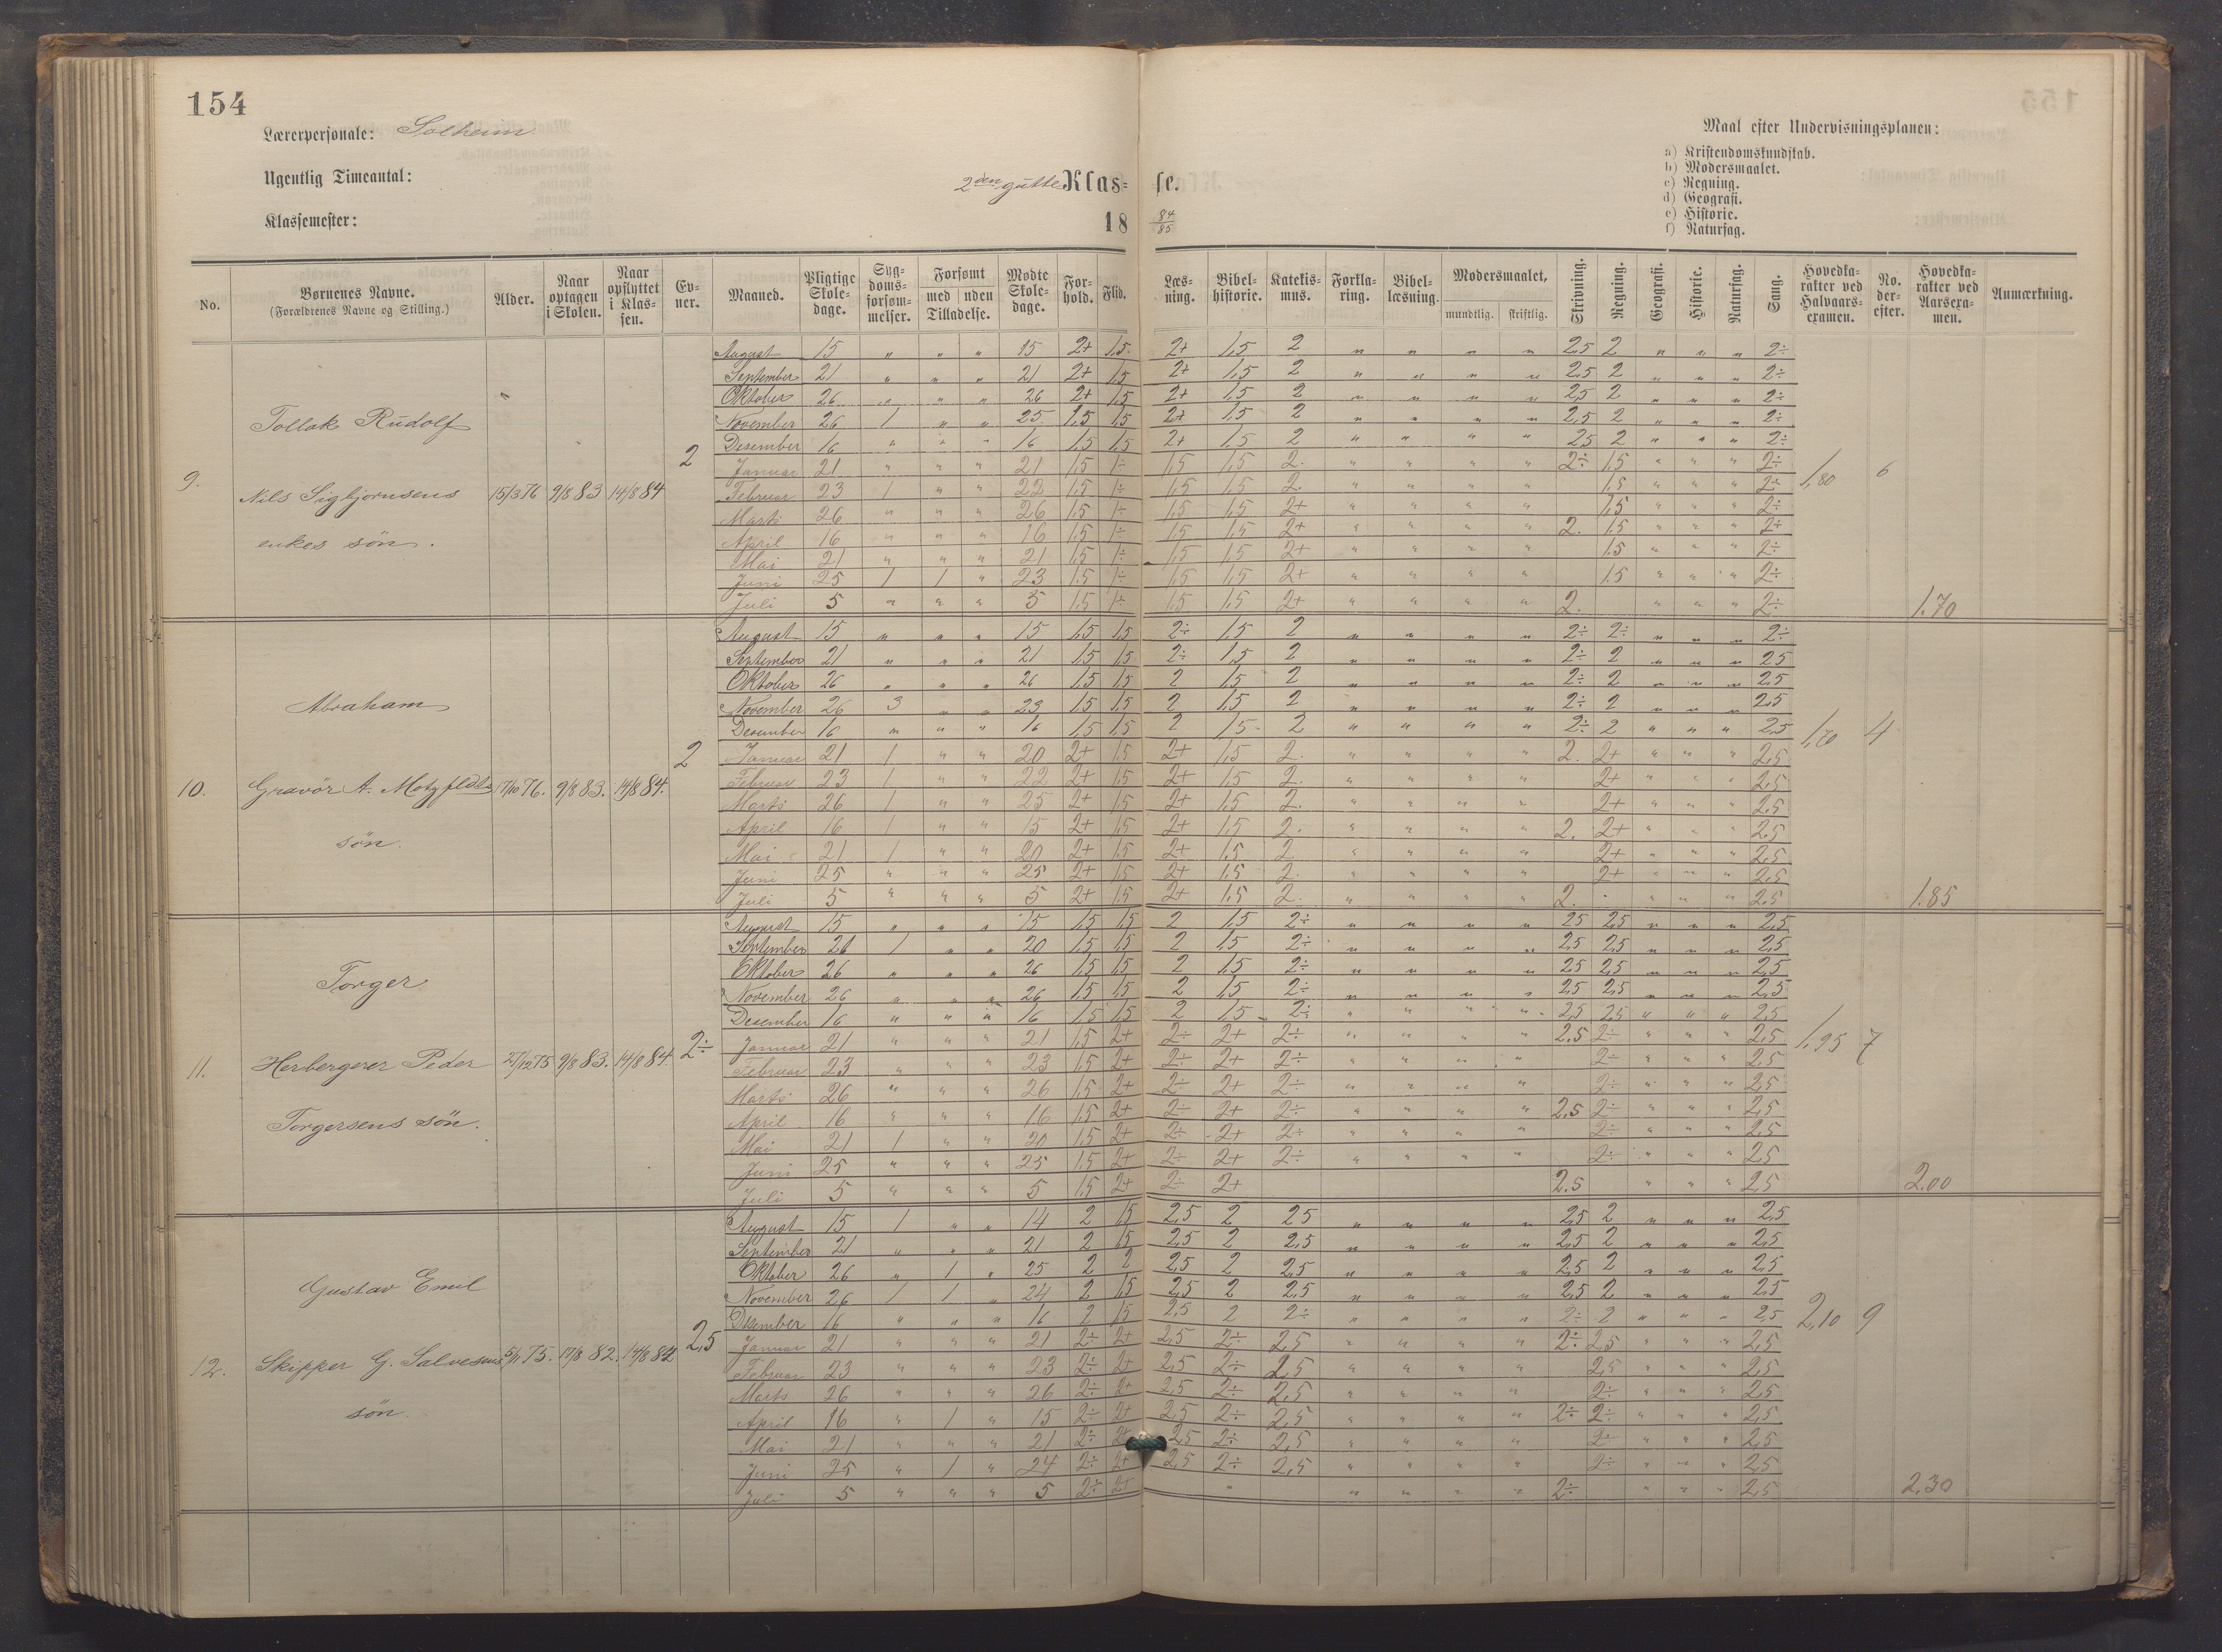 154
Lærerpersonale: Solheim.
Ugentlig Timeantal:
Klassemester:
2den gutte Klas- se.
18 84/85
Maal efter Undervisningsplanen:
a) Kristendomskundskab.
b) Modersmaalet.
c) Regning.
d) Geografi.
e) Historie.
f) Naturfag.
No. Børnenes Navne. (Forældrenes Navne og Stilling.) Alder. Naar optagen i Skolen. Naar opflyttet i Klassen. Evner. Maaned. Pligtige Skoledage. Sygdomsforsømmelser. Forsømt med uden Tilladelse. Mødte Skoledage. Forhold. Flid. Læsning. Bibelhistorie. Katekismus. Forklaring. Bibellæsning. Modersmaalet, mundtlig. skriftlig. Skrivning. Regning. Geografi. Historie. Naturfag. Sang. Hovedkarakter ved Halvaarsexamen. No. derefter. Hovedkarakter ved Aarsexamen. Anmærkning.
9. Tollak Rudolf
Nils Sigbjørnsens
enkes søn.
15/3 76 9/8 83 14/8 84 2
August 15 " " " 15 2+ 1,5 2+ 1,5 2 " " " " 2,5 2 " " " 2÷
September 21 " " " 21 2+ 1,5 2+ 1,5 2 " " " " 2,5 2 " " " 2÷
Oktober 26 " " " 26 2+ 1,5 2+ 1,5 2 " " " " 2,5 2 " " " 2÷
November 26 1 " " 25 1,5 1,5 2+ 1,5 2 " " " " 2,5 2 " " " 2÷
Desember 16 " " " 16 1,5 1,5 2+ 1,5 2 " " " " 2,5 2 " " " 2÷
Januar 21 " " " 21 1,5 1÷ 1,5 1,5 2. " " " " 2÷ 1,5 " " " 2÷ 1,80 6
Februar 23 1 " " 22 1,5 1÷ 1,5 1,5 2. " " " " 1,5 " " " 2÷
Marts 26 " " " 26 1,5 1÷ 1,5 1,5 2+ " " " " 1,5 " " " 2÷
April 16 " " " 16 1,5 1÷ 1,5 1,5 2+ " " " " 2. 1,5 " " " 2÷
Mai 21 " " " 21 1,5 1÷ 1,5 1,5 2+ " " " " 1.5 " " " 2÷
Juni 25 1 1 " 23 1.5 1÷ 1,5 1,5 2+ " " " " 1.5 " " " 2÷
Juli 5 " " " 5 1.5 1÷ 1,5 1,5 2+ " " " " 2. " " " 2÷ 1.70
10. Abraham
Gravör A. Motzfeldts
søn.
17/10 76. 9/8 83. 14/8 84. 2
August 15 " " " 15 1,5 1,5 2÷ 1,5 2 " " " " 2÷ 2÷ " " " 2÷
September 21 " " " 21 1,5 1,5 2÷ 1,5 2 " " " " 2÷ 2 " " " 2,5
Oktober 26 " " " 26 1,5 1,5 2 1,5 2 " " " " 2÷ 2 " " " 2,5
November 26 3 " " 23 1,5 1,5 2 1,5 2 " " " " 2÷ 2 " " " 2,5
Desember 16 " " " 16 1,5 1,5 2 1,5 2 " " " " 2÷ 2 " " " 2,5 1,70 4
Januar 21 1 " " 20 2+ 1,5 2+ 1,5 2. " " " " 2. 2+ " " " 2,5
Februar 23 1 " " 22 2+ 1,5 2+ 1,5 2. " " " " 2+ " " " 2,5
Marts 26 1 " " 25 2+ 1,5 2+ 1,5 2. " " " " 2+ " " " 2,5
April 16 1 " " 15 2+ 1,5 2+ 1,5 2. " " " " 2. 2+ " " " 2,5
Mai 21 1 " " 20 2+ 1,5 2+ 1,5 2 " " " " 2+ " " " 2,5
Juni 25 " " " 25 2+ 1,5 2+ 1,5 2. " " " " 2+ " " " 2,5
Juli 5 " " " 5 2+ 1,5 2+ 1,5 2. " " " " 2. " " " 2,5 1.85
11. Torger
Herbergerer Peder
Torgersens søn.
27/12 75 9/8 83. 14/8 84. 2÷
August 15 " " " 15 1,5 1,5 2 1,5 2÷ " " " " 2,5 2,5 " " " 2,5
September 21 1 " " 20 1,5 1,5 2 1,5 2÷ " " " " 2,5 2,5 " " " 2,5
Oktober 26 " " " 26 1,5 1,5 2 1,5 2÷ " " " " 2,5 2,5 " " " 2,5
November 26 " " " 26 1,5 1,5 2 1,5 2÷ " " " " 2,5 2,5 " " " 2,5
Desember 16 " " " 16 1,5 1,5 2 1,5 2÷ " " " " 2,5 2,5 " " " 2,5
Januar 21 " " " 21 1,5 2+ 2÷ 2+ 2÷ " " " " 2.5 2÷ " " " 2,5 1,95 7
Februar 23 " " " 23 1,5 2+ 2÷ 2+ 2÷ " " " " 2÷ " " " 2,5
Marts 26 " " " 26 1,5 2+ 2÷ 2+ 2÷ " " " " 2÷ " " " 2,5
April 16 " " " 16 1,5 2+ 2÷ 2+ 2÷ " " " " 2.5 2÷ " " " 2,5
Mai 21 1 " " 20 1,5 2+ 2÷ 2+ 2÷ " " " " 2÷ " " " 2,5
Juni 25 " " " 25 1,5 2+ 2÷ 2+ 2÷ " " " " 2÷ " " " 2,5
Juli 5 " " " 5 1.5 2+ 2÷ 2+ 2.5 " " " 2,5 2.00
12. Gustav Emil
Skipper G. Salvesens
søn.
5/1 75. 17/8 82. 14/8 84 2,5
August 15 1 " " 14 2 1,5 2,5 2 2,5 " " " " 2,5 2 " " " 2,5
September 21 " " " 21 2 1,5 2,5 2 2,5 " " " " 2,5 2 " " " 2,5
Oktober 26 " 1 " 25 2 2 2,5 2 2,5 " " " " 2,5 2 " " " 2,5
November 26 1 1 " 24 2 1,5 2,5 2 2,5 " " " " 2,5 2 " " " 2,5
Desember 16 " " " 16 2 1,5 2,5 2 2÷ " " " " 2÷ 2 " " " 2,5 2,10 9
Januar 21 " " " 21 2÷ 2+ 2,5 2÷ 2,5 " " " " 2÷ 2,5 " " " 2,5
Februar 23 " " " 23 2÷ 2+ 2,5 2÷ 2,5 " " " " 2,5 " " " 2,5
Marts 26 " " " 26 2÷ 2+ 2,5 2÷ 2,5 " " " " 2÷ " " " 2,5
April 16 " 1 " 15 2÷ 2+ 2,5 2÷ 2,5 " " " " 2÷ 2÷ " " " 2,5
Mai 21 " " " 21 2÷ 2+ 2,5 2÷ 2,5 " " " " 2÷ " " " 2,5
Juni 25 " 1 " 24 2÷ 2+ 2,5 2÷ 2,5 " " " " 2÷ " " " 2,5
Juli 5 " " " 5 2÷ 2+ " " " " " 2÷ " " " 2,5 2.30